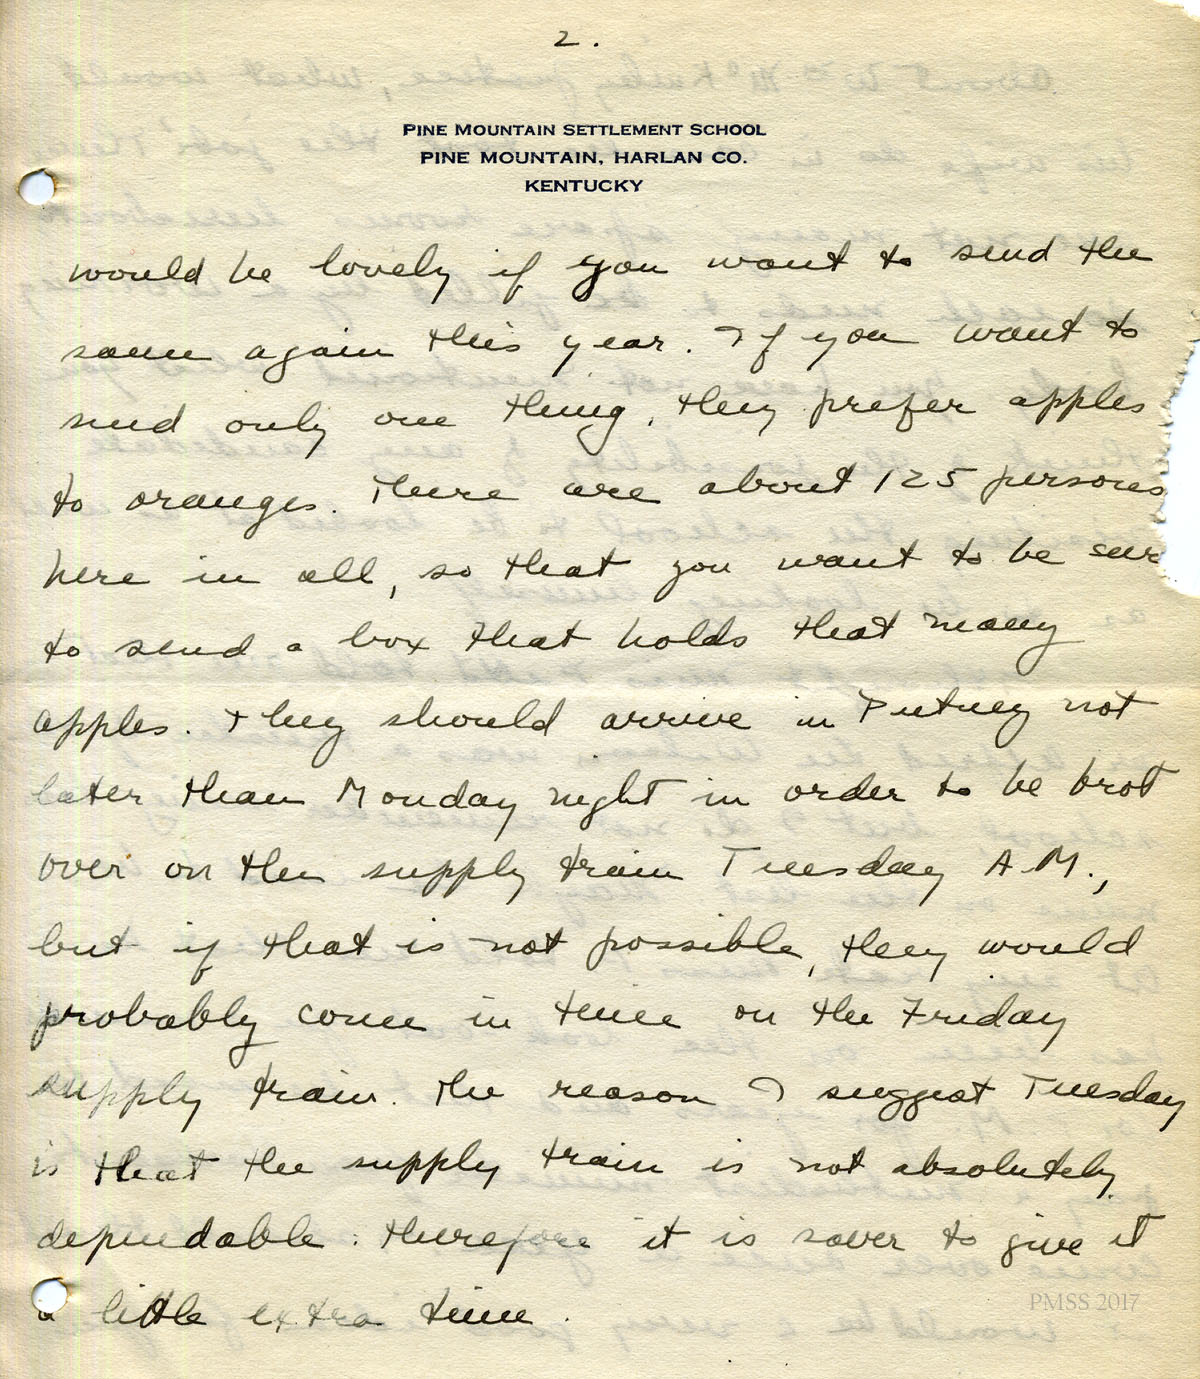 2.
PINE MOUNTAIN SETTLEMENT SCHOOL
PINE MOUNTAIN, HARLAN CO.
KENTUCKY
would be lovely if you want to send the
same again this year. If you want to
send only one thing, they prefer apples
to oranges. There are about 125 persons
here in all, so that you want to be sur
to send a box that holds that many
apples. They should arrive in Putney not
later than Monday night in order to be brot
over on the supply train Tuesday A.M.,
but if that is not possible, they would
probably come in time on the Friday
supply train. The reason I suggest Tuesday
is that the supply train is not absolutely
dependable; therefore it is saver to give it
a little extra time.
PMSS 2017